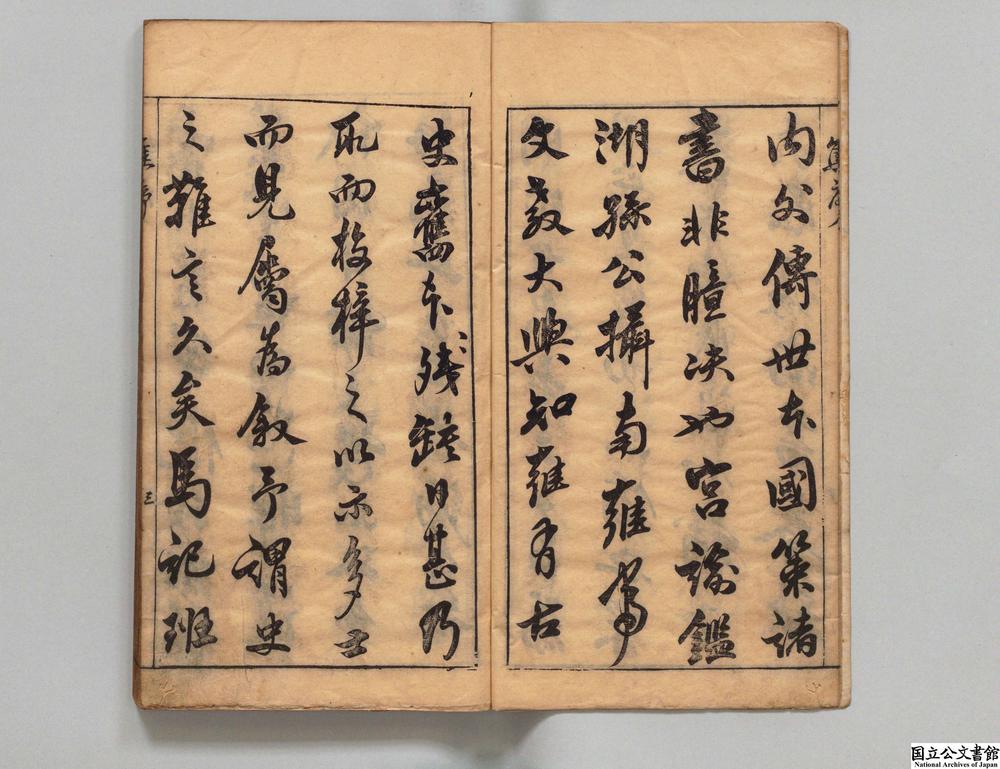 内父傳世本國策諸
書非臆決也宮諭鑑
湖孫公攝南雍事
文教大興知雍有古
史舊本殘缺日甚乃
取而校梓之以示多士
而見屬為叙予謂史
之難言久矣馬記班
三
国立公文書館
National Archives of Japan